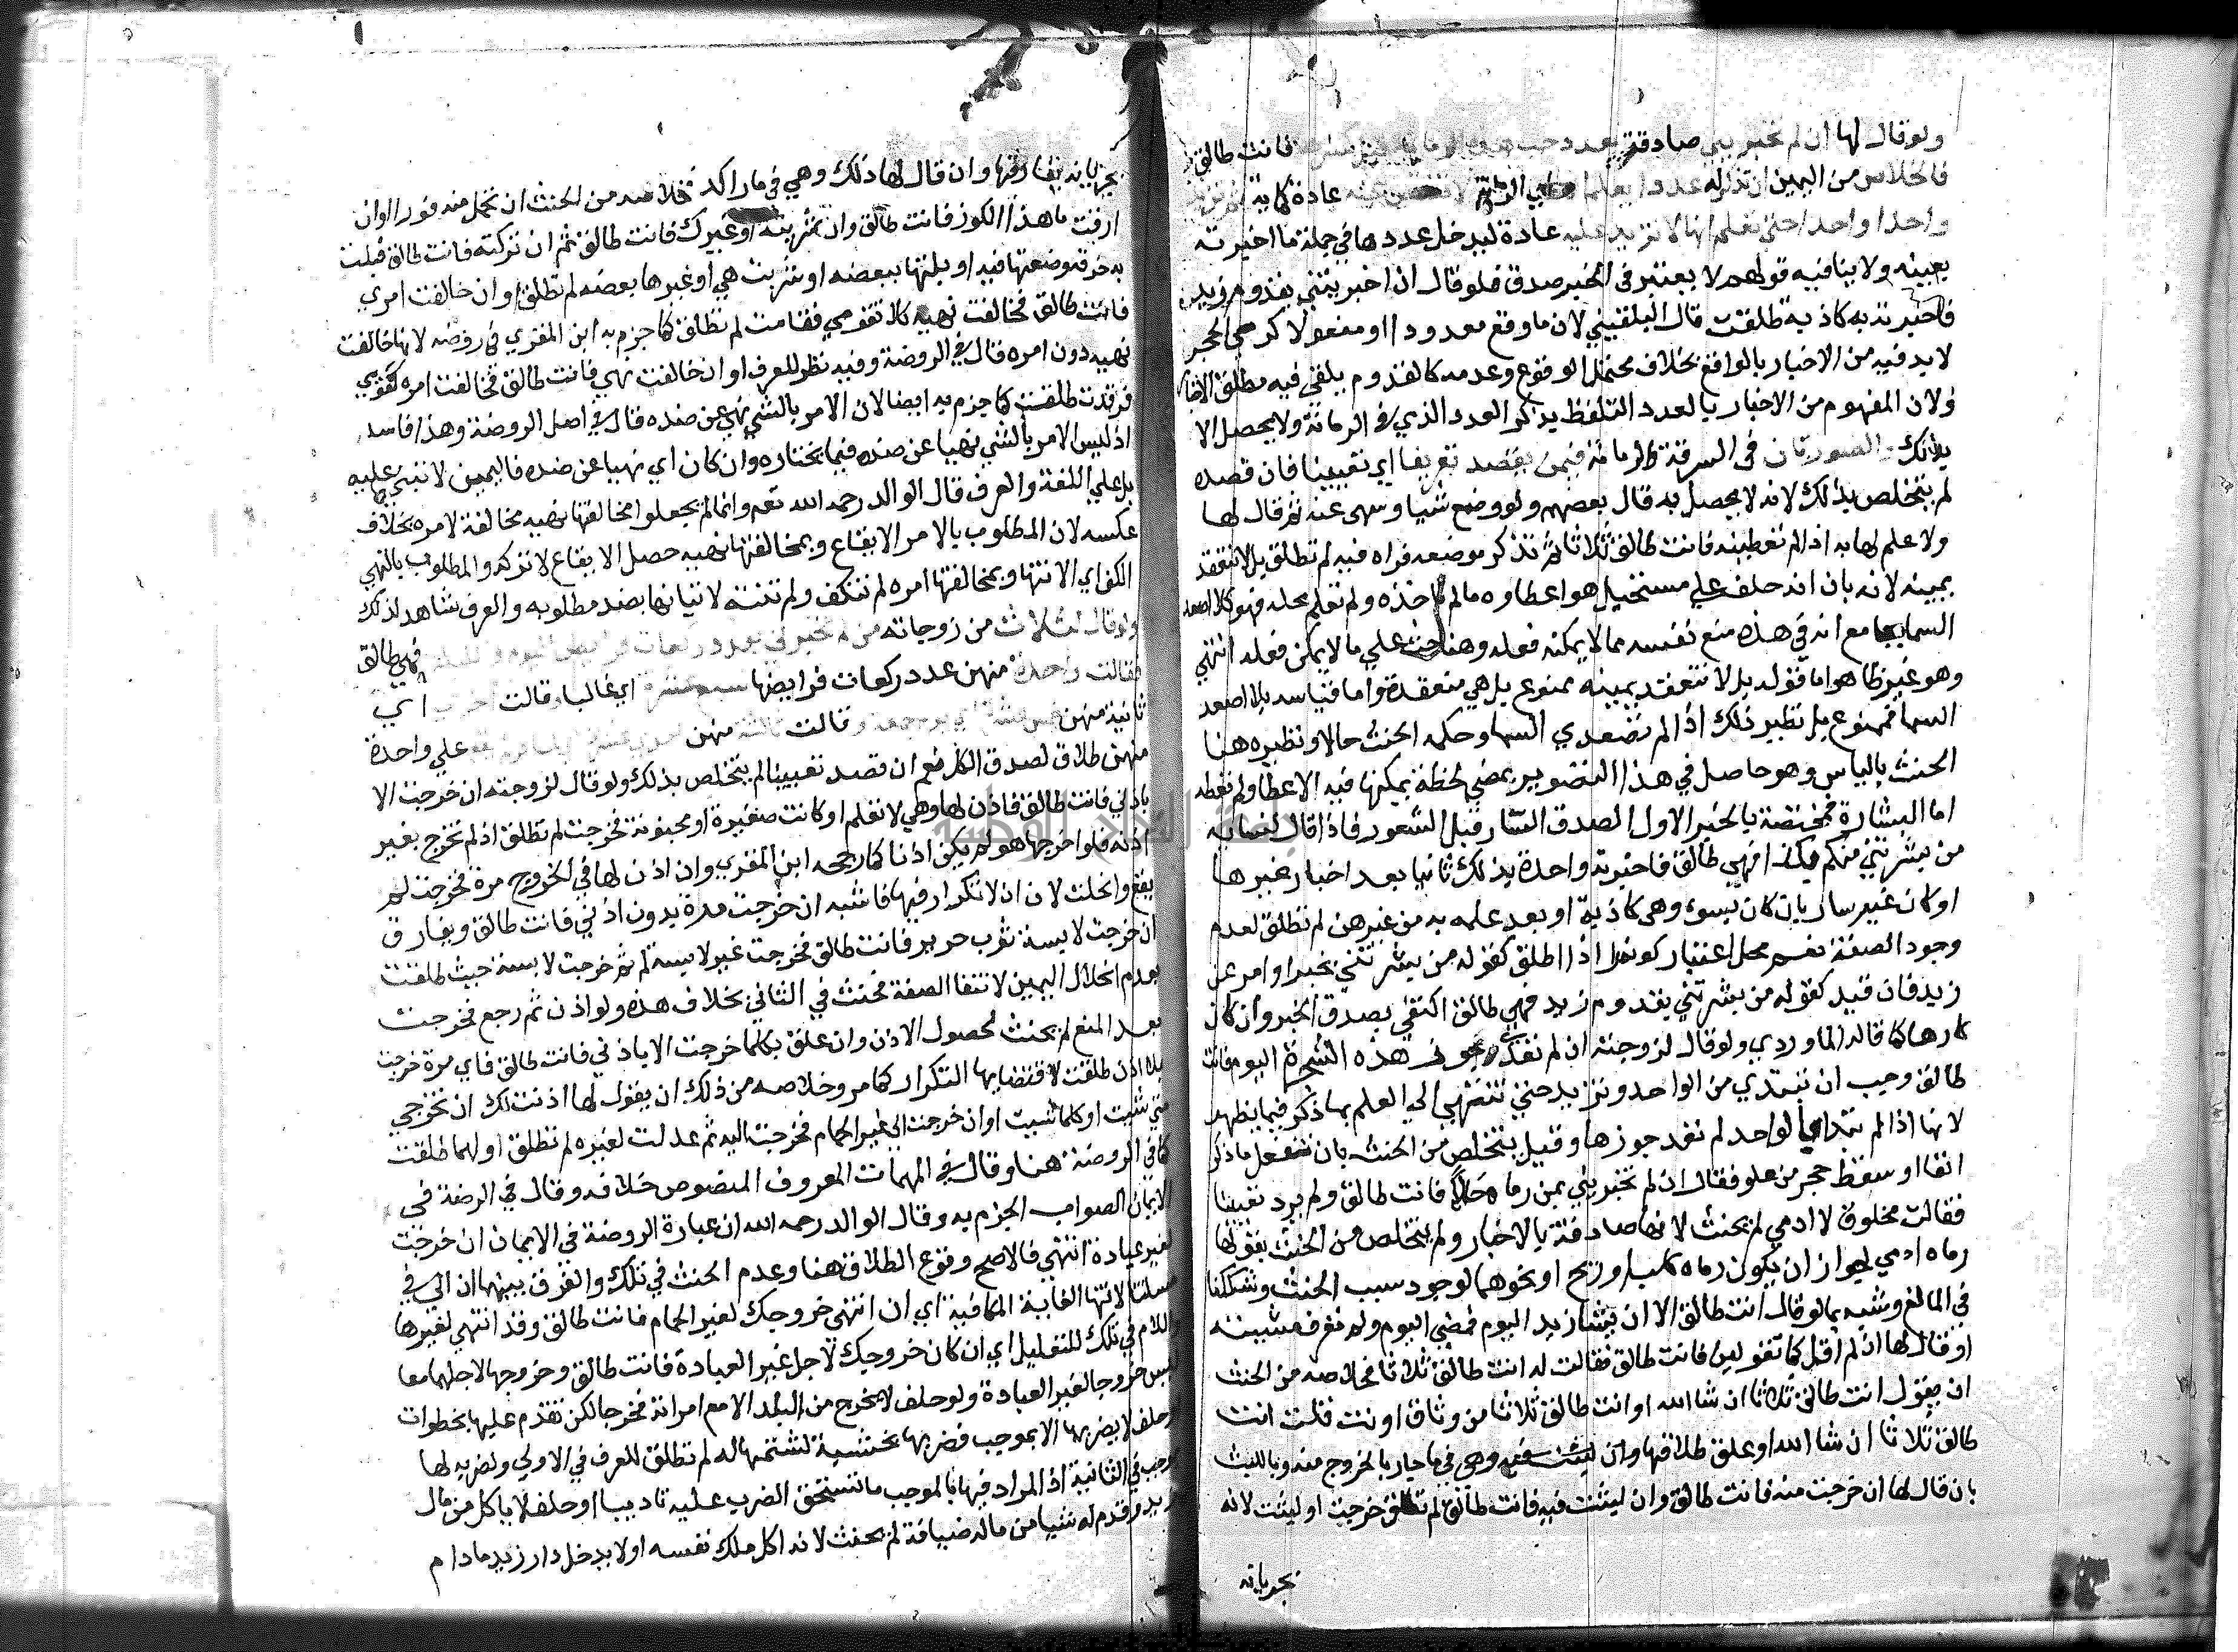 ولو قال لها ان لم تخبريني صادقة بعدد حب فانت طالق
فالخلاص من اليمين ان تذكر له عددا يعلم عادة كماية
واحدا واحدا حتى تعلم انها لا تزيد عليه عادة ليدخل عددها في جملة ما اخبرته
بعينه ولا ينافيه قولهم لا يعتبر في الخبر صدق فلو قال ان اخبرتيني بقدوم زيد
فاخبرته به كاذبة طلقت قال البلقيني لان ما وقع معدودا او مفعولا كرمي الحجر
لا بد فيه من الاخبار بالواقع بخلاف محتمل الوقوع وعدمه كالقدوم يلفي فيه مطلق الاخبار
ولان المفهوم من الاخبار بالعدد التلفظ بذكر العدد الذي في الرمانة ولا يحصل الا
بذلك والصورتان في السرقة والرمانة فيمن يقصد تعريفا اي تعيينا فان قصده
لم يتخلص بذلك لانه لا يحصل به قال بعضهم ولو وضع شيا وسهى عنه ثم قال لها
ولا علم لها به اذا لم تعطينه فانت طالق ثلاثا ثم تذكر موضعه فراه فيه لم تطلق بل لا تنعقد
يمينه لانه بان انه حلف علي مستحيل هو اعطاوه ما لم تاخذه ولم تعلم محله فهو كلا اصعد
السما بجامع انه في هذه منع نفسه مما لا يمكنه فعله وهنا حث علي ما لا يمكن فعله انتهي
وهو غير ظاهر اما قوله بل لا تنعقد يمينه ممنوع بل هي منعقدة واما قياسه بلا اصعد
السما فممنوع بل نظير ذلك اذا لم تصعدي السما وحكمه الحنث حالا ونظيره هنا
الحنث بالياس وهو حاصل في هذا التصوير بمضي لحظة يمكنها فيه الاعطا ولم تعطه
اما البشارة فمختصة بالخبر الاول الصدق السار قبل الشعور فاذا قال لنسائه
من بشرتني منكم بكذا فهي طالق فاخبرته واحدة بذلك ثانيا بعد اخبار غيرها
او كان غير سار بان كان بسوء وهي كاذبة او بعد علمه به من غيرهن لم تطلق لعدم
وجود الصفة نعم محل اعتبار كونه سارا اذا اطلق كقوله من بشرتني بخبر او امر عن
زيد فان قيد كقوله من بشرتني بقدوم زيد فهي طالق اكتفي بصدق الخبر وان كان
كارها كما قاله الماوردي ولو قال لزوجته ان لم تعدي جوز هذه الشجرة اليوم فانت
طالق وجب ان تبتدي من الواحد وتزيد حتى تنتهي الي العلم بما ذكر فيما يظهر
لانها اذا لم تبتدا بالواحد لم تعد جوزها وقيل يتخلص من الحنث بان تفعل ما ذكر
انفا او سقط حجر من علو فقال ان لم تخبريني بمن رماه حالا فانت طالق ولم يرد تعيينا
فقالت مخلوق لا ادمي لم يحنث لانها صادقة بالاخبار ولم يتخلص من الحنث بقولها
رماه ادمي لجواز ان يكون رماه كلب او ريح او نحوهما لوجود سبب الحنث وتشككنا
في المانع وشبه بما لو قال انت طالق الا ان يشا زيد اليوم فمضي اليوم ولم تعرف مشيئته
او قال لها ان لم اقل كما تقولين فانت طالق فقالت له انت طالق ثلاثا فخلاصه من الحنث
ان يقول انت طالق ثلاثا ان شا الله او انت طالق ثلاثا من وثاق او نت قلت انت
طالق ثلاثا ان شا الله او علق طلاقها وان لبثت فيه وهي في ما جار بالخروج منه وباللبث
بان قال لها ان خرجت منه فانت طالق وان لبثت فيه فانت طالق لم تطلق خرجت او لبثت لانه
بجريانه
بجريانه يفارقها وان قال لها ذلك وهي في ما راكد فخلاصه من الحنث ان تحمل منه فورا او ان
ارقت ما هذا الكوز فانت طالق وان شربته او غيرك فانت طالق ثم ان تركته فانت طالق فبلت
به خرقة وضعتها فيه او بلتها ببعضه او شربت هي او غيرها بعضه لم تطلق او ان خالفت امري
فانت طالق فخالفت نهيه كلا تقومي فقامت لم تطلق كما جزم به ابن المقري في روضه لانها خالفت
نهيه دون امره قال في الروضة وفيه نظر للعرف او ان خالفت نهي فانت طالق فخالفت امره كقومي
فرقدت طلقت كما جزم به ايضا لان الامر بالشي نهي عن ضده قال في اصل الروضة وهذا فاسد
اذ ليس الامر بالشي نهيا عن ضده فيما يختاره وان كان اي نهيا عن ضده فاليمين لا تنبني عليه
بل علي اللغة والعرف قال الوالد رحمه الله نعم وانما لم يجعلوا مخالفتها نهيه مخالفة لامره بخلاف
عكسه لان المطلوب بالامر الايقاع وبمخالفتها نهيه حصل الايقاع لا تركه والمطلوب بالنهي
الكف اي الانتها وبمخالفتها امره لم تنكف ولم تنته لاتيانها بضد مطلوبه والعرف شاهد لذلك
ولو قال لثلاث من زوجاته من لم تخبرني بعدد ركعات فرايض اليوم والليلة فهي طالق
فقالت واحدة منهن عدد ركعات فرايضها سبع عشرة اي غالبا وقالت اخرى اي
ثانية منهن خمس عشرة اي يوم جمعة وقالت ثالثة منهن احدى عشرة اي لمسافر لم يقع علي واحدة
منهن طلاق لصدق الكل نعم ان قصد تعيينا لم يتخلص بذلك ولو قال لزوجته ان خرجت الا
باذني فانت طالق فاذن لها وهي لا تعلم او كانت صغيرة او مجنونة فخرجت لم تطلق اذ لم تخرج بغير
اذنه فلو اخرجها هو لم يكن اذنا كما رجحه ابن المقري وان اذن لها في الخروج مرة فخرجت لم
يقع وانحلت لان ان لا تكرار فيها فاشبه ان خرجت مرة بدون اذني فانت طالق ويفارق
ان خرجت لابسة ثوب حرير فانت طالق فخرجت غير لابسة له ثم خرجت لابسة حيث طلقت
بعدم انحلال اليمين لانتفا الصفة فحنث في الثاني بخلاف هذه ولو اذن ثم رجع فخرجت
بعد المنع لم يحنث لحصول الاذن وان علق بكلما خرجت الا باذني فانت طالق فاي مرة خرجت
بلا اذن طلقت لاقتضايها التكرار كما مر وخلاصه من ذلك ان يقول لها اذنت لك ان تخرجي
متي شيت او كلما شيت او ان خرجت الي غير الحمام فخرجت اليه ثم عدلت لغيره لم تطلق او لهما طلقت
كما في الروضة هنا وقال في المهمات المعروف المنصوص خلافه وقال في الرضة في
الايمان الصواب الجزم به وقال الوالد رحمه الله ان عبارة الروضة في الايمان ان خرجت
لغير عيادة انتهي فالاصح وقوع الطلاق هنا وعدم الحنث في تلك والفرق بينهما ان الي في
مسلتنا لانتها الغاية المكانية اي ان انتهي خروجك لغير الحمام فانت طالق وقد انتهي لغيرها
واللام في تلك للتعليل اي ان كان خروجك لاجل غير العيادة فانت طالق وخروجها لاجلهما معا
ليس خروجا لغير العيادة ولو حلف لا يخرج من البلد الا مع امراته فخرجا لكن تقدم عليها بخطوات
او حلف لا يضربها الا بموجب فضربها بخشبة لشتمها له لم تطلق للعرف في الاولي ولضربه لها
بموجب في الثانية اذ المراد فيها بالموجب ما تستحق الضرب عليه تاديبا او حلف لا ياكل من مال
زيد وقدم له شيا من ماله ضيافة لم يحنث لانه اكل ملك نفسه او لا يدخل دار زيد ما دام